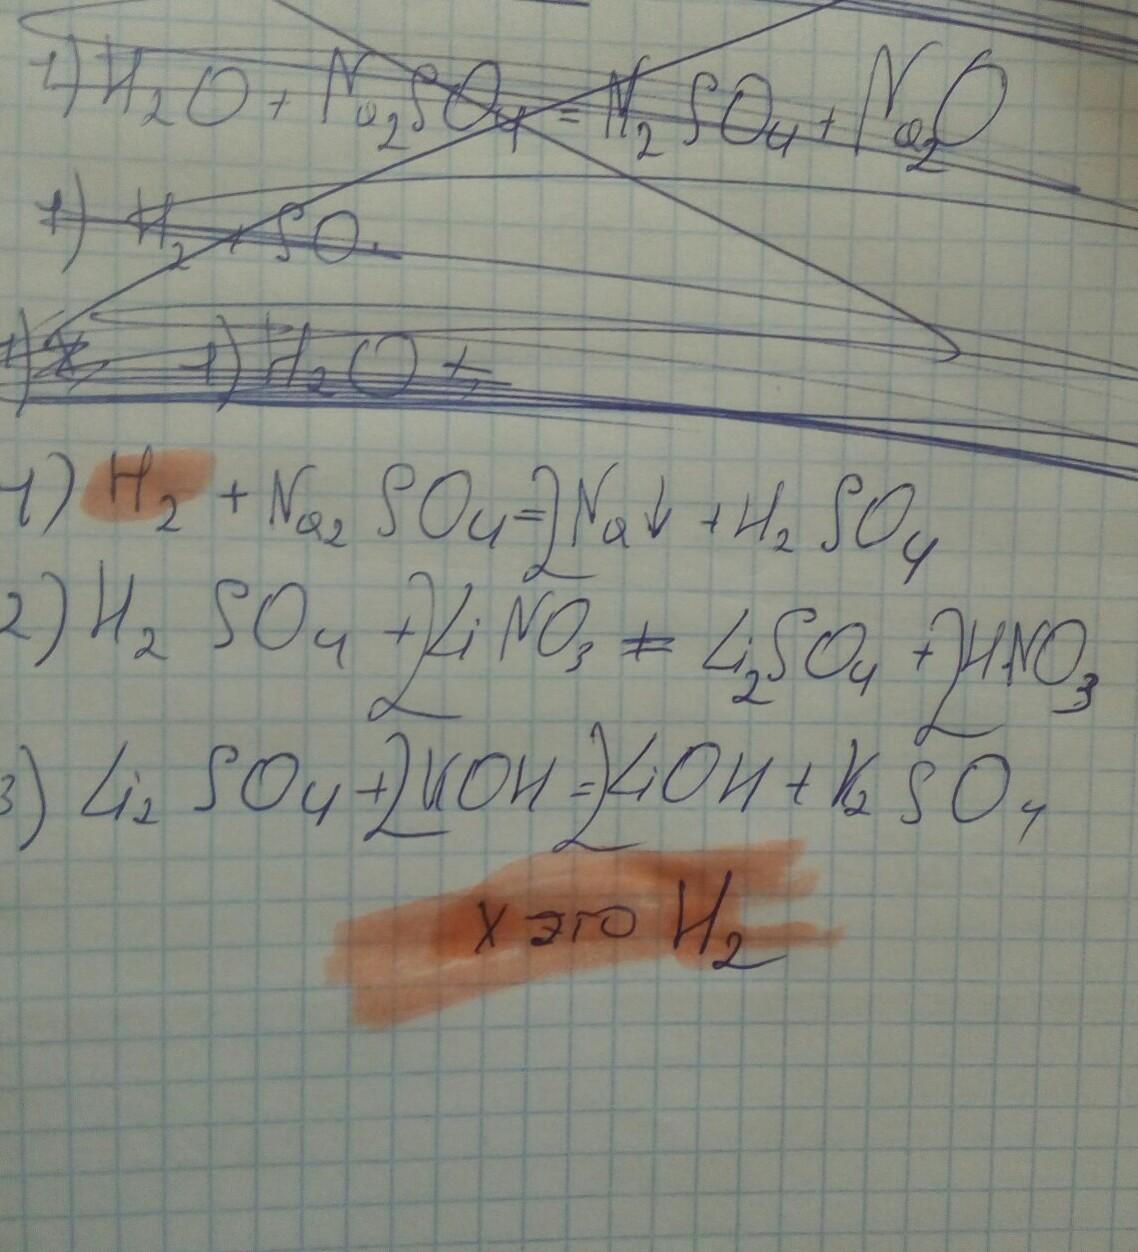 1) H₂O + Na₂SO₄ = H₂SO₄ + Na₂O
1) H₂ + SO
1) H₂O +
1) H₂ + Na₂SO₄ = 2Na↓ + H₂SO₄
2) H₂SO₄ + 2LiNO₃ ≠ Li₂SO₄ + 2HNO₃
3) Li₂SO₄ + 2KOH = 2LiOH + K₂SO₄
х это H₂